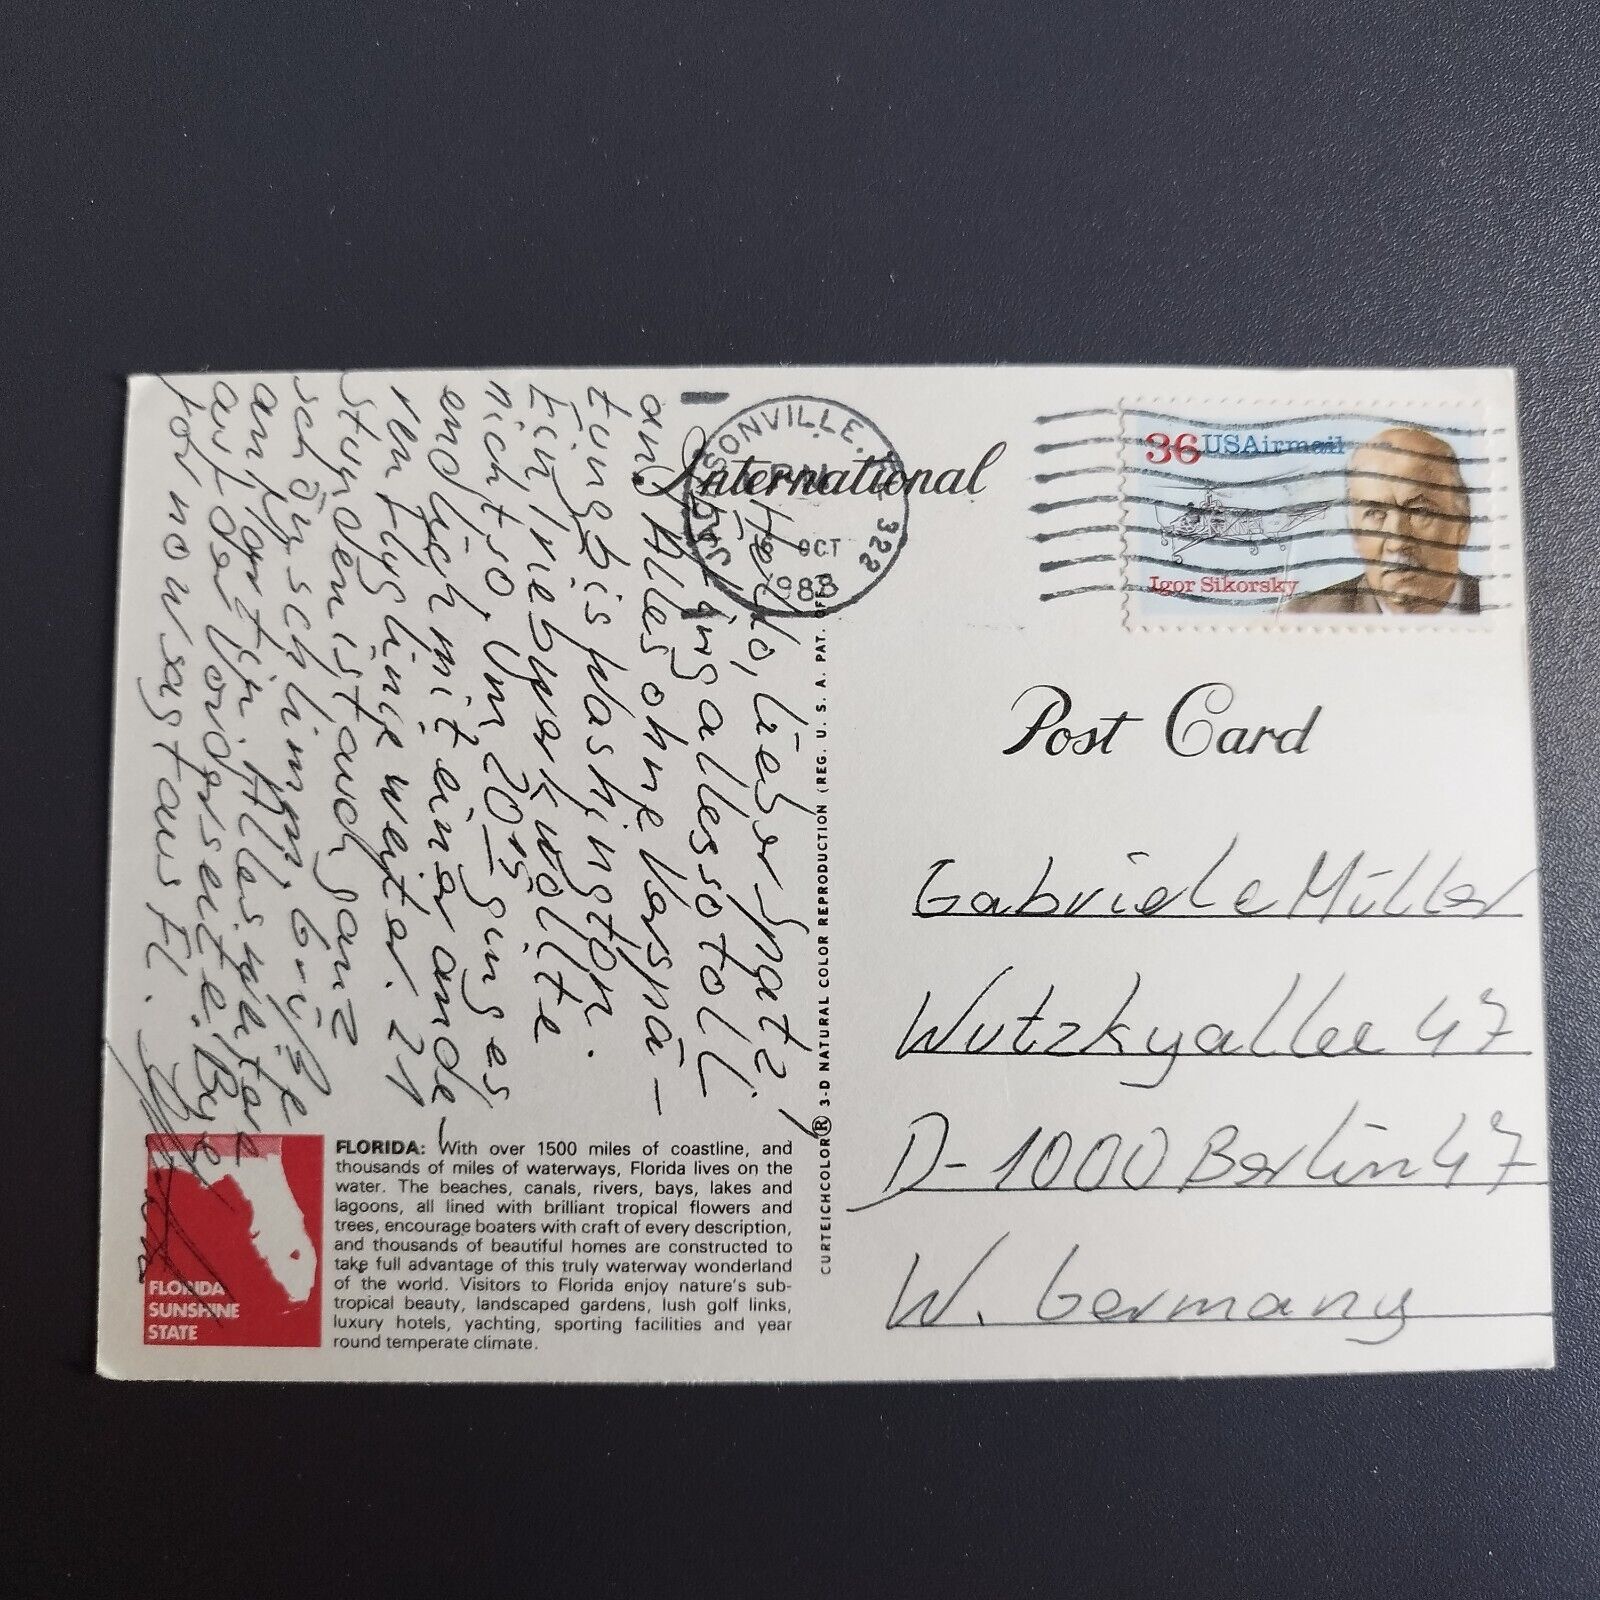 International
SONVILLE, FL 322
PM
OCT
1988
36 USAirmail
Igor Sikorsky
Post Card
Gabriele Müller
Wutzkyallee 47
D-1000 Berlin 47
W. Germany
Hello, lieber Spatz,
ging alles so toll
an. Alles ohne Verspä-
tung bis Washington.
Ein Triebwerk wollte
nicht so. Um 20.15 ging es
endlich mit einer ande-
ren Fluglinie weiter. 21
Stunden ist auch ganz
schön schlimm. Grüße
an Alles weitere
auf der Vorderseite. Bye
for now sagt aus Fl.
CURTEICHCOLOR® 3-D NATURAL COLOR REPRODUCTION (REG. U. S. A. PAT. OFF.
FLORIDA SUNSHINE STATE
FLORIDA: With over 1500 miles of coastline, and
thousands of miles of waterways, Florida lives on the
water. The beaches, canals, rivers, bays, lakes and
lagoons, all lined with brilliant tropical flowers and
trees, encourage boaters with craft of every description,
and thousands of beautiful homes are constructed to
take full advantage of this truly waterway wonderland
of the world. Visitors to Florida enjoy nature's sub-
tropical beauty, landscaped gardens, lush golf links,
luxury hotels, yachting, sporting facilities and year
round temperate climate.